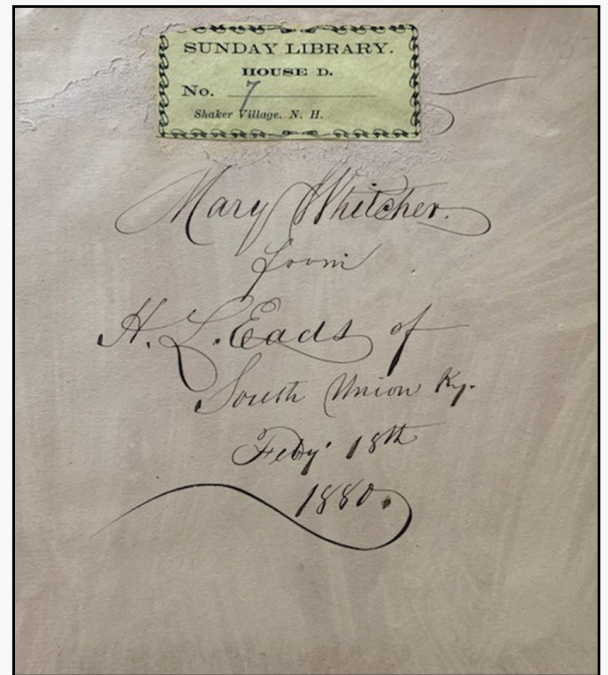 SUNDAY LIBRARY.
HOUSE D.
No. 7
Shaker Village. N. H.
Mary Whitcher.
from
H. L. Eads of
South Union Ky.
Feby. 18th
1880.